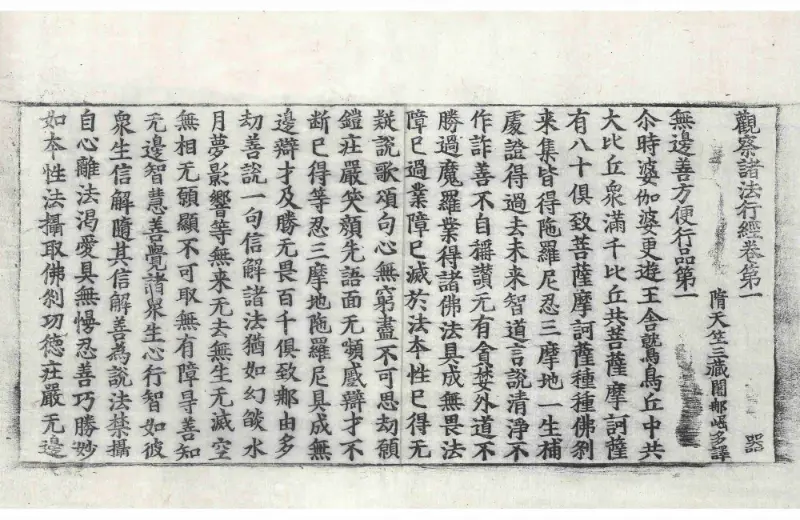 觀察諸法行經卷第一
隋天竺三藏闍那崛多譯
器
無邊善方便行品第一
尒時婆伽婆更遊王舍鷲鳥丘中共
大比丘衆滿千比丘共菩薩摩訶薩
有八十俱致菩薩摩訶薩種種佛刹
来集皆得陁羅尼忍三摩地一生補
處證得過去未来智道言說清淨不
作詐善不自稱讃无有貪婪外道不
勝過魔羅業得諸佛法具成無畏法
障已過業障已滅於法本性已得无
疑說歌頌句心無窮盡不可思劫願
鎧莊嚴笑顏先語面无嚬蹙辯才不
断已得等忍三摩地陁羅尼具成無
邊辯才及勝无畏百千俱致那由多
劫善說一句信解諸法猶如幻燄水
月夢影響等無来无去無生无滅空
無相无願顯不可取無有障导善知
无邊智慧善覺諸衆生心行智如彼
衆生信解隨其信解善為說法禁攝
自心離法渴愛具無慢忍善巧勝妙
如本性法攝取佛刹功德莊嚴无邊